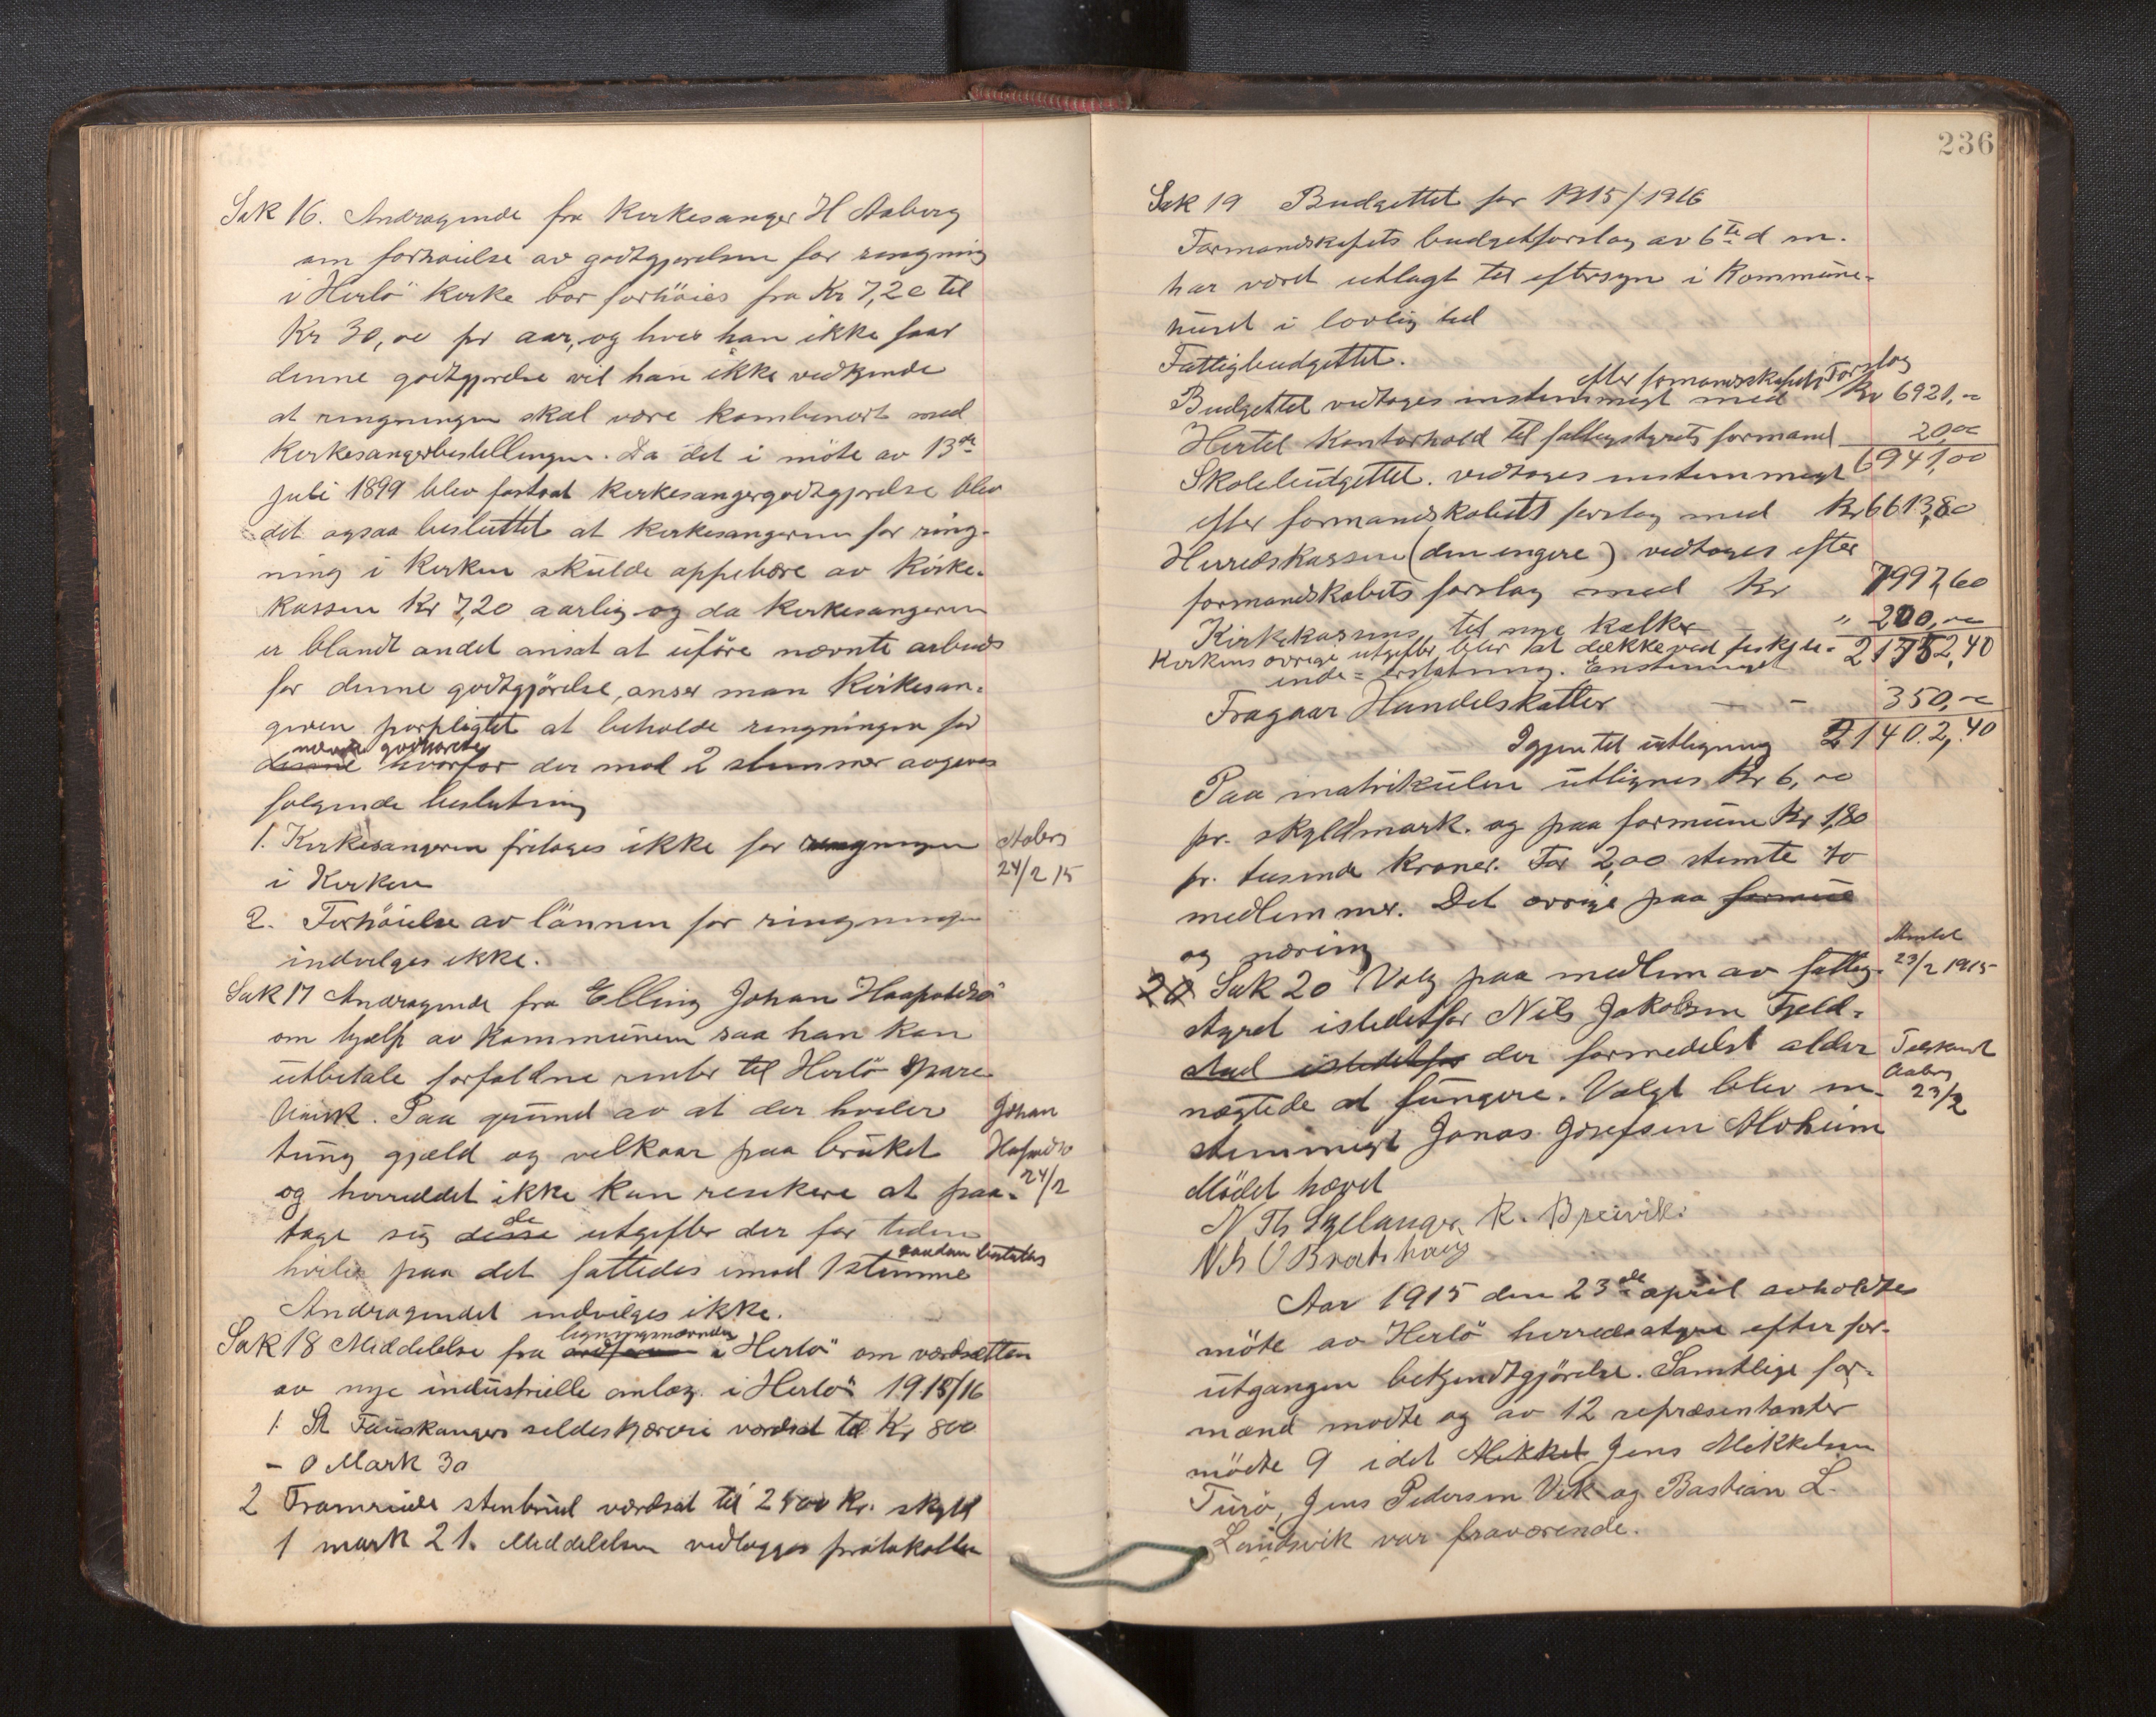 Sak 16. Andragende fra Kirkesanger H Aaberg
om forhöielse av godtgjörelsen for ringning
i Herlö Kirke bör forhöies fra Kr 7,20 til
Kr 30,00 pr aar, og hvis han ikke faar
denne godtgjörelse vil han ikke vedkjende
at ringningen skal være kombinert med
Kirkesangerbestillingen. Da det i möte av 13de
juli 1899 blev fastsat Kirkesangergodtgjörelse blev
det ogsaa besluttet at Kirkesangeren for ring-
ning i Kirken skulde oppebære av Kirke-
kassen Kr 7,20 aarlig og da Kirkesangeren
er blandt andet ansat at uföre nævnte arbeids
for denne godtgjörelse, anser man Kirkesan-
geren forpligtet at beholde ringningen for
nævnte godtgjörelse
denne hvorfor der mod 2 stemmer avgives
følgende beslutning
1. Kirkesangeren fritages ikke for ringningen
i Kirken
Aaberg
24/2 15
2. Forhöielse av lönnen for ringningen
indvilges ikke.
Sak 17 Andragende fra Elling Johan
om hjælp av Kommunen saa han kan
utbetale forfaldne renter til Herlö Spare
bank. Paa grund av at der hviler
tung gjæld og velkaar paa bruket
og herredet ikke kan resikere at paa-
Johan
24/2
de
tage sig disse utgifter der for tiden
saadan beslutning
hviler paa det fattedes imod 1 stemme
Andragendet indvilges ikke.
ligningsnævnden
Sak 18 Middelelse fra i Herlö om værdsætten
av nye industrielle anlæg i Herlö 1915/16
1. St Fauskangers seldeskjæreri værdsat til Kr 800
- 0 Mark 30
2 Framnede stenbrud værdsat til 2400 Kr. skyld
1 mark 21. Middelelsen vedlægges protokollen
236
Sak 19 Budgettet for 1915/1916
Formandskapets budgetforslag av 6te d m.
har været utlagt til eftersyn i Kommune-
huset i lovlig tid
Fattigbudgettet.
efter formandsskapets Forslag
Budgettet vedtoges instemmigt med Kr 6921,00
Hertel Kontorhold til fattigstyrets formand 20,00
6941,00
Skolebudgettet. vedtoges instemmigt
efter formandskabets forslag med Kr 6613,80
Herredskassen (den engere) vedtoges efter
formandskabets forslag med Kr 7997,60
Kirkekassens til nye kalker " 200,00
Kirkens övrige utgifter blir at dække ved
inde = Erstatning. Enstemmigt 21752,40
Fragaar Handelskatter - - 350,00
Igjen til utligning 21402,40
Paa matrikulen utlignes Kr 6,00
pr. skyldmark. og paa formue Kr 1,80
pr. tusinde kroner. For 2,00 stemte to
medlemmer. Det övrige paa formue
og næring
Anmeldt
23/2 1915
20 Sak 20 Valg paa medlem av fattig-
styret istedetfor Nils Jakobsen Fjeld-
stad istedetfor der formedelst alder
nægtede at fungere. Valgt blev en-
stemmigt Jonas Josefsen Moheim
Tilskrevet
Aaberg
23/2
Mödet hævet
N Th Sælanger. K. Breivik.
Nils O Bratshaug
Aar 1915 den 23de april avholdtes
möte av Herlö herredsstyre efter for-
utgangen bekjendtgjörelse. Samtlige for-
mænd mödte og av 12 repræsentanter
mödte 9 idet Mikkel Jens Mikkelsen
Turö, Jens Pedersen Vik og Bastian L.
Landsvik var fraværende.